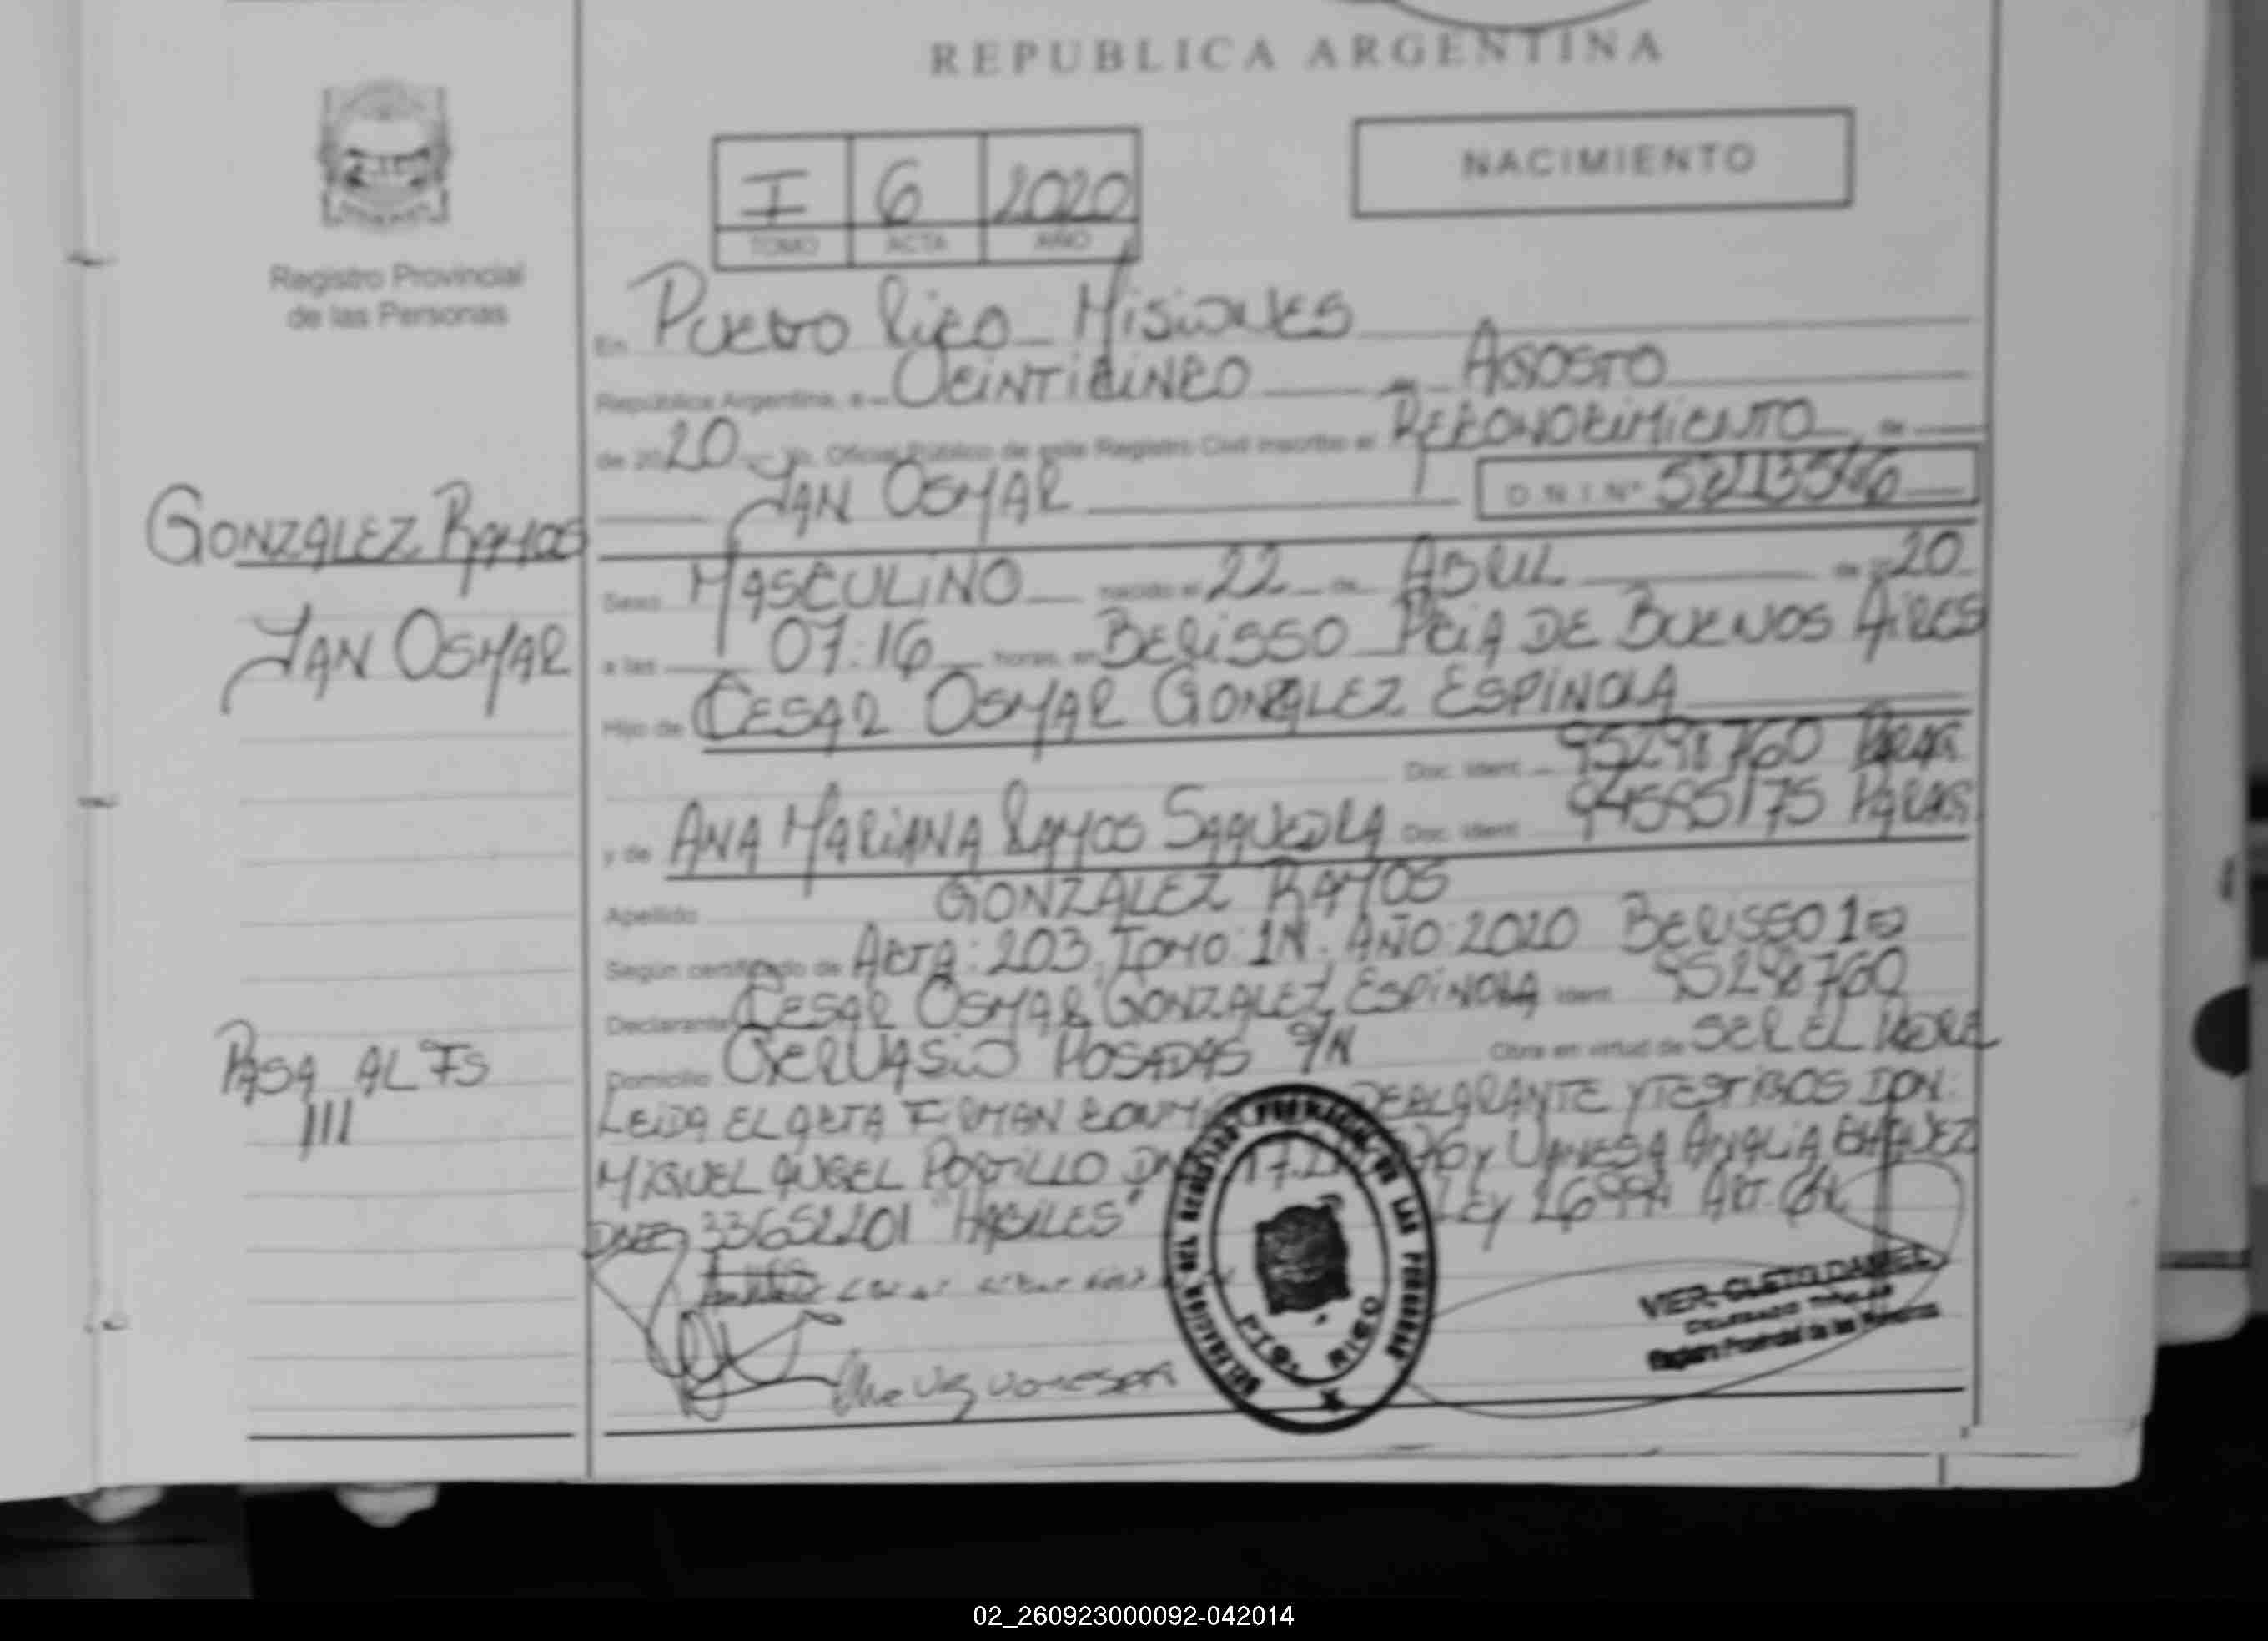 REPUBLICA ARGENTINA
NACIMIENTO
I 6 2020
TOMO ACTA AÑO
Registro Provincial
de las Personas
En Puerto Rico Misiones
República Argentina, a VEINTICINCO de AGOSTO
de 2020 Yo, Oficial Público de este Registro Civil inscribo el RECONOCIMIENTO de
JAN OSMAR D.N.I. Nº
GONZALEZ RAMOS
JAN OSMAR
Sexo MASCULINO nacido el 22 de ABRIL de 2020
a las 07:16 horas, en BERISSO PCIA DE BUENOS AIRES
Hijo de CESAR OSMAR GONZALEZ ESPINOLA
Doc. Ident. 95298760 PARAG.
y de ANA MARIANA RAMOS SAAVEDRA Doc. Ident. 94595175 PARAG.
Apellido GONZALEZ RAMOS
Según certificado de ACTA: 203. TOMO: 1N. AÑO: 2020 BERISSO 1ª
Declarante CESAR OSMAR GONZALEZ ESPINOLA Ident. 95298760
Domicilio GERVASIO POSADAS S/N Obra en virtud de SER EL PADRE
PASA AL FS
111
LEIDA EL ACTA FIRMAN DECLARANTE Y TESTIGOS DON:
MIGUEL ANGEL PORTILLO Y VANESA ANALIA CHAVEZ
33652201 "HABILES" LEY 26994 ART. 64
DELEGACION DEL REGISTRO PROVINCIAL DE LAS PERSONAS
PTO. RICO
VIER CLETO DANIEL
DELEGADO TITULAR
Registro Provincial de las Personas
02_260923000092-042014